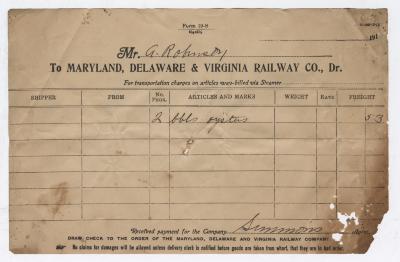 Form 19-S
191
Mr. A. Robinson
To MARYLAND, DELAWARE & VIRGINIA RAILWAY CO., Dr.
For transportation charges on articles way-billed via Steamer
SHIPPER FROM No. Pkgs. ARTICLES AND MARKS WEIGHT Rate FREIGHT
2 bbls oysters 53
Received payment for the Company, Simmons
DRAW CHECK TO THE ORDER OF THE MARYLAND, DELAWARE AND VIRGINIA RAILWAY COMPANY
No claims for damages will be allowed unless delivery clerk is notified before goods are taken from wharf, that they are in bad order.